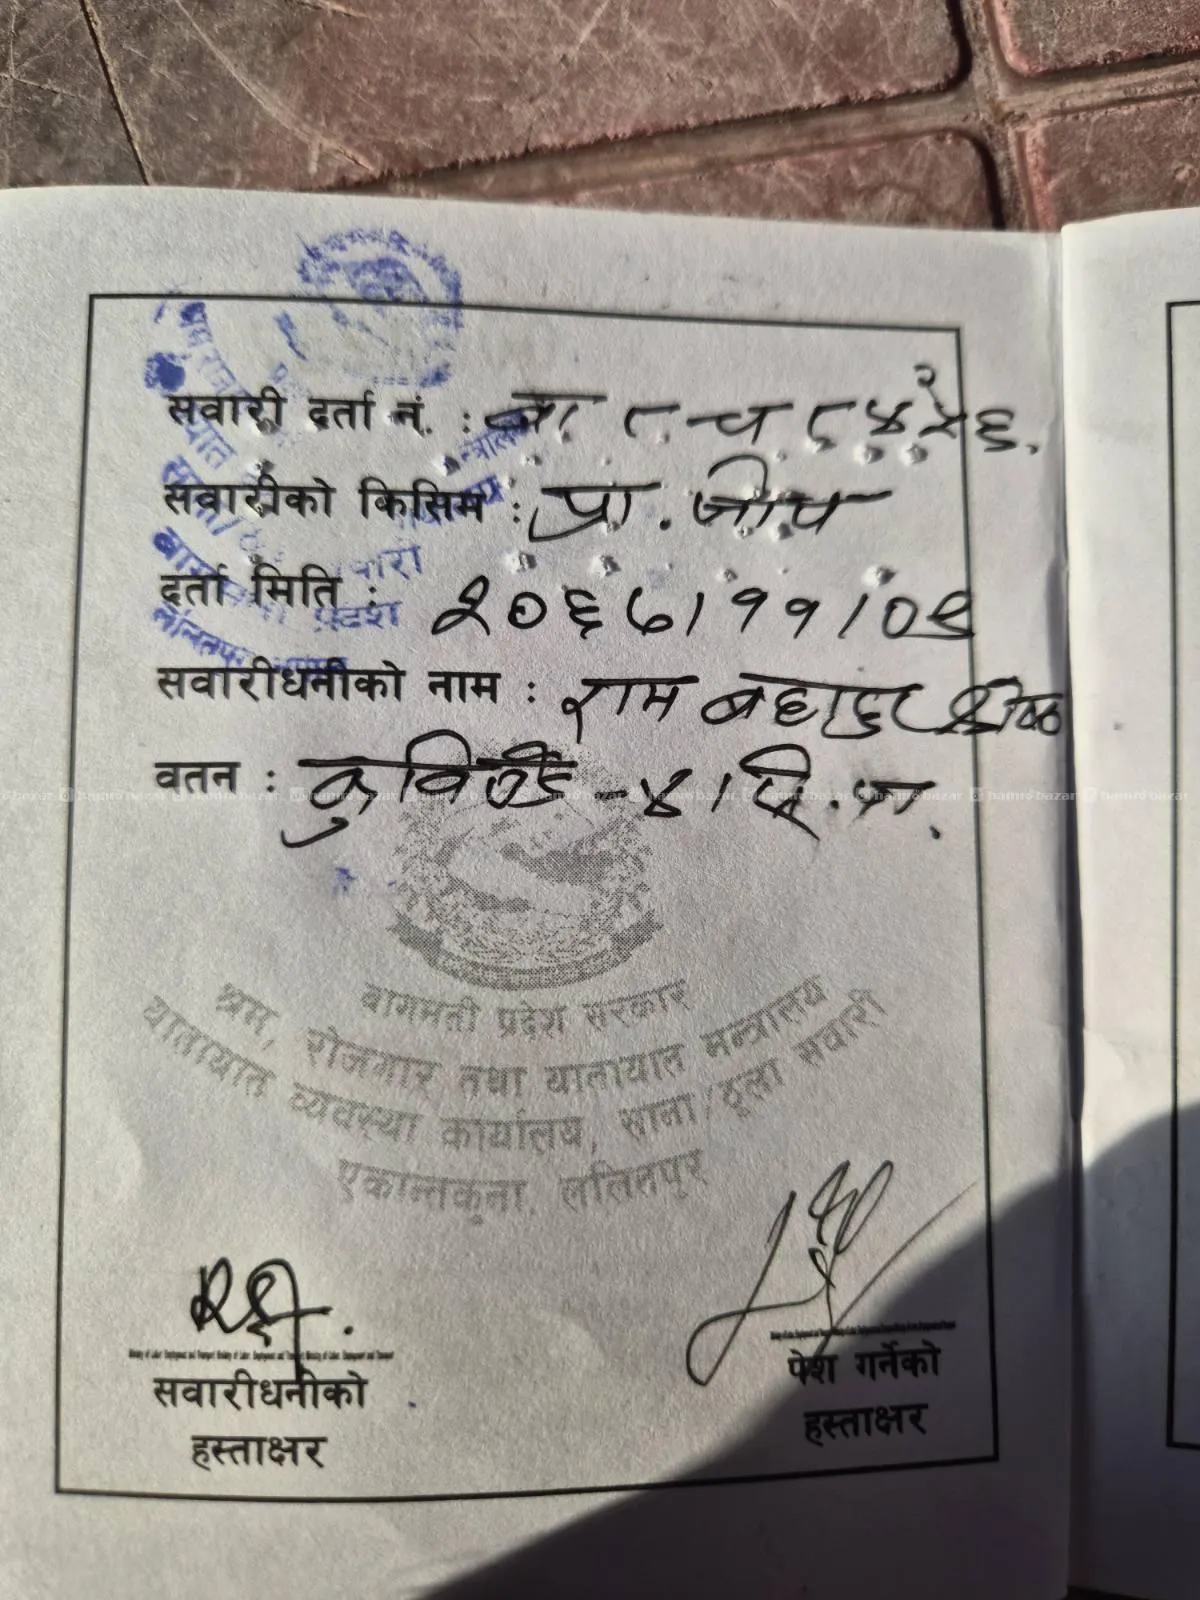 सवारी दर्ता नं. : बा ८ च ८४२६
सवारीको किसिम : प्रा. जीप
दर्ता मिति : २०६७।११।०९
सवारीधनीको नाम : राम बहादुर श्रेष्ठ
वतन : कुविण्डे - ४। सि.पा.
hamrobazar hamrobazar hamrobazar
बागमती प्रदेश सरकार
श्रम, रोजगार तथा यातायात मन्त्रालय
यातायात व्यवस्था कार्यालय, साना/ठूला सवारी
एकान्तकुना, ललितपुर
सवारीधनीको
हस्ताक्षर
पेश गर्नेको
हस्ताक्षर